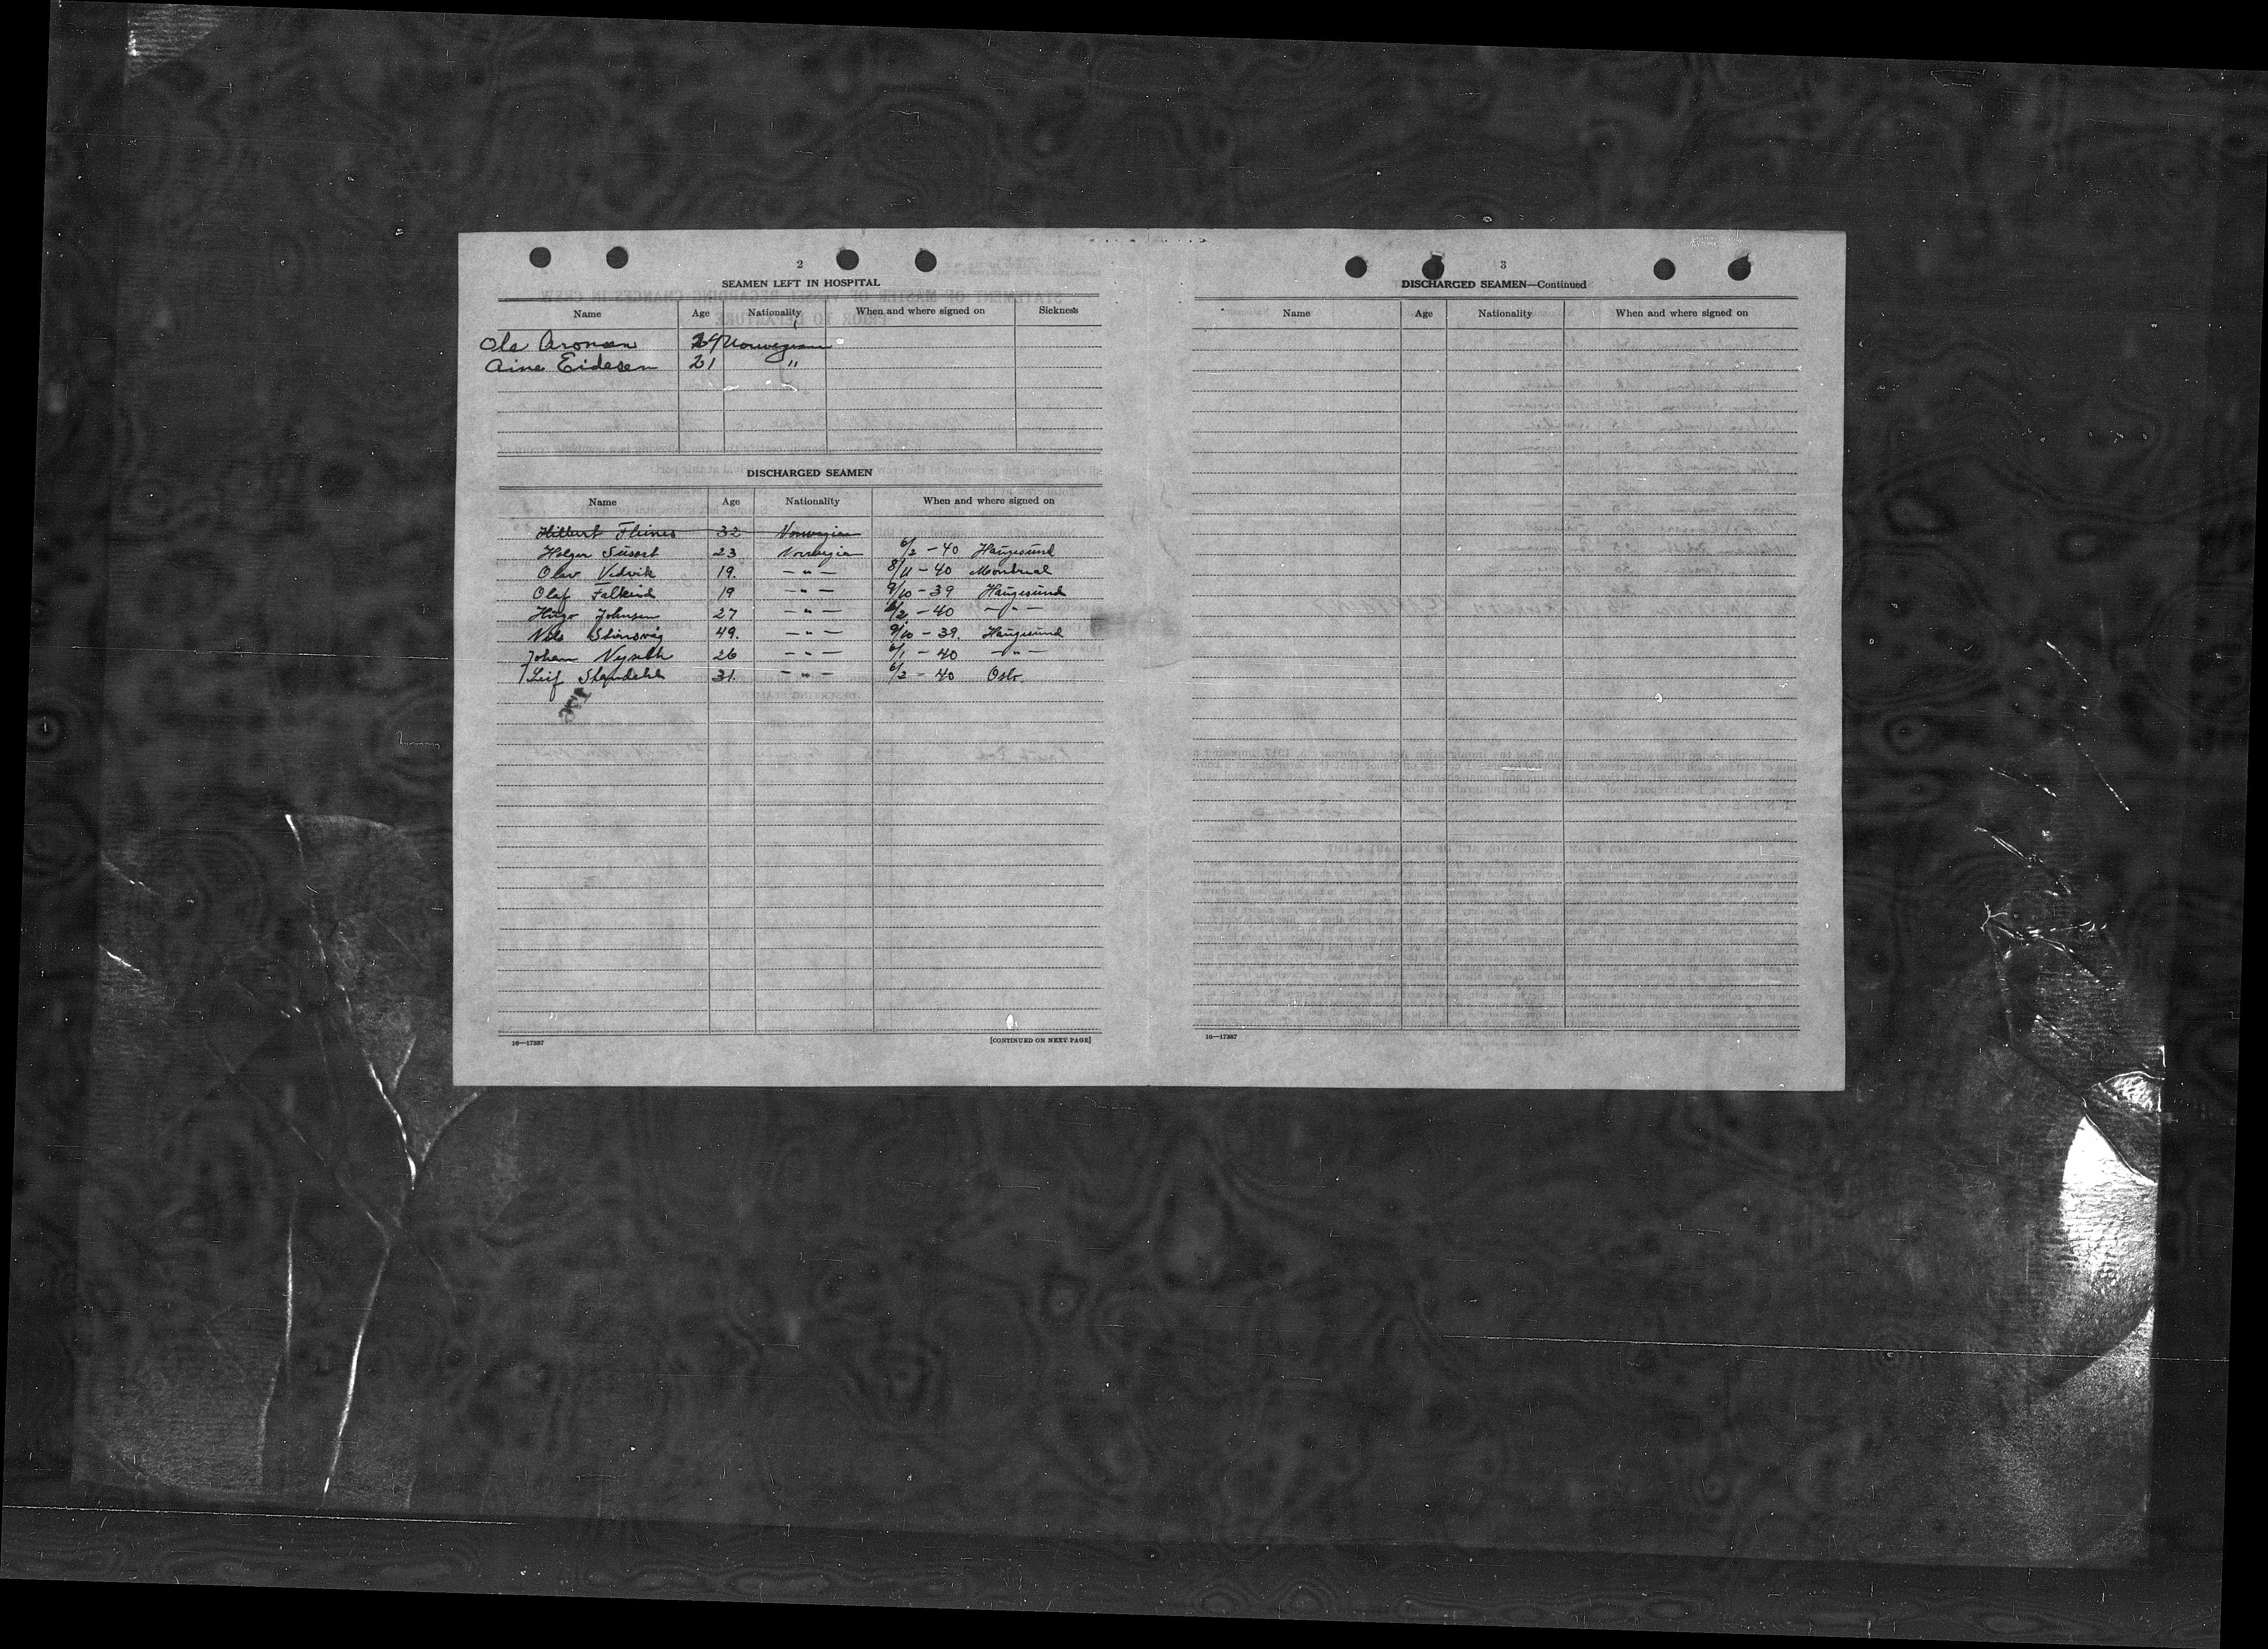 2
SEAMEN LEFT IN HOSPITAL
Name Age Nationality When and where signed on Sickness
Ole Aronsen 24 Norwegian
Aine Eidesen 21 "
DISCHARGED SEAMEN
Name Age Nationality When and where signed on
32 Norwegian
Holger 23 Norwegian 6/2 - 40 Haugesund
Olav Vedvik 19. - " - 8/11 - 40 Montreal
Olaf Falkeid 19 - " - 9/10 - 39 Haugesund
Hugo Johnsen 27 - " - 6/2 - 40 - " -
Nils 49. - " - 9/10 - 39. Haugesund
Johan 26 - " - 6/1 - 40 - " -
Leif 31. - " - 6/2 - 40 Oslo.
16—17387 [CONTINUED ON NEXT PAGE]
3
DISCHARGED SEAMEN—Continued
Name Age Nationality When and where signed on
16—17387